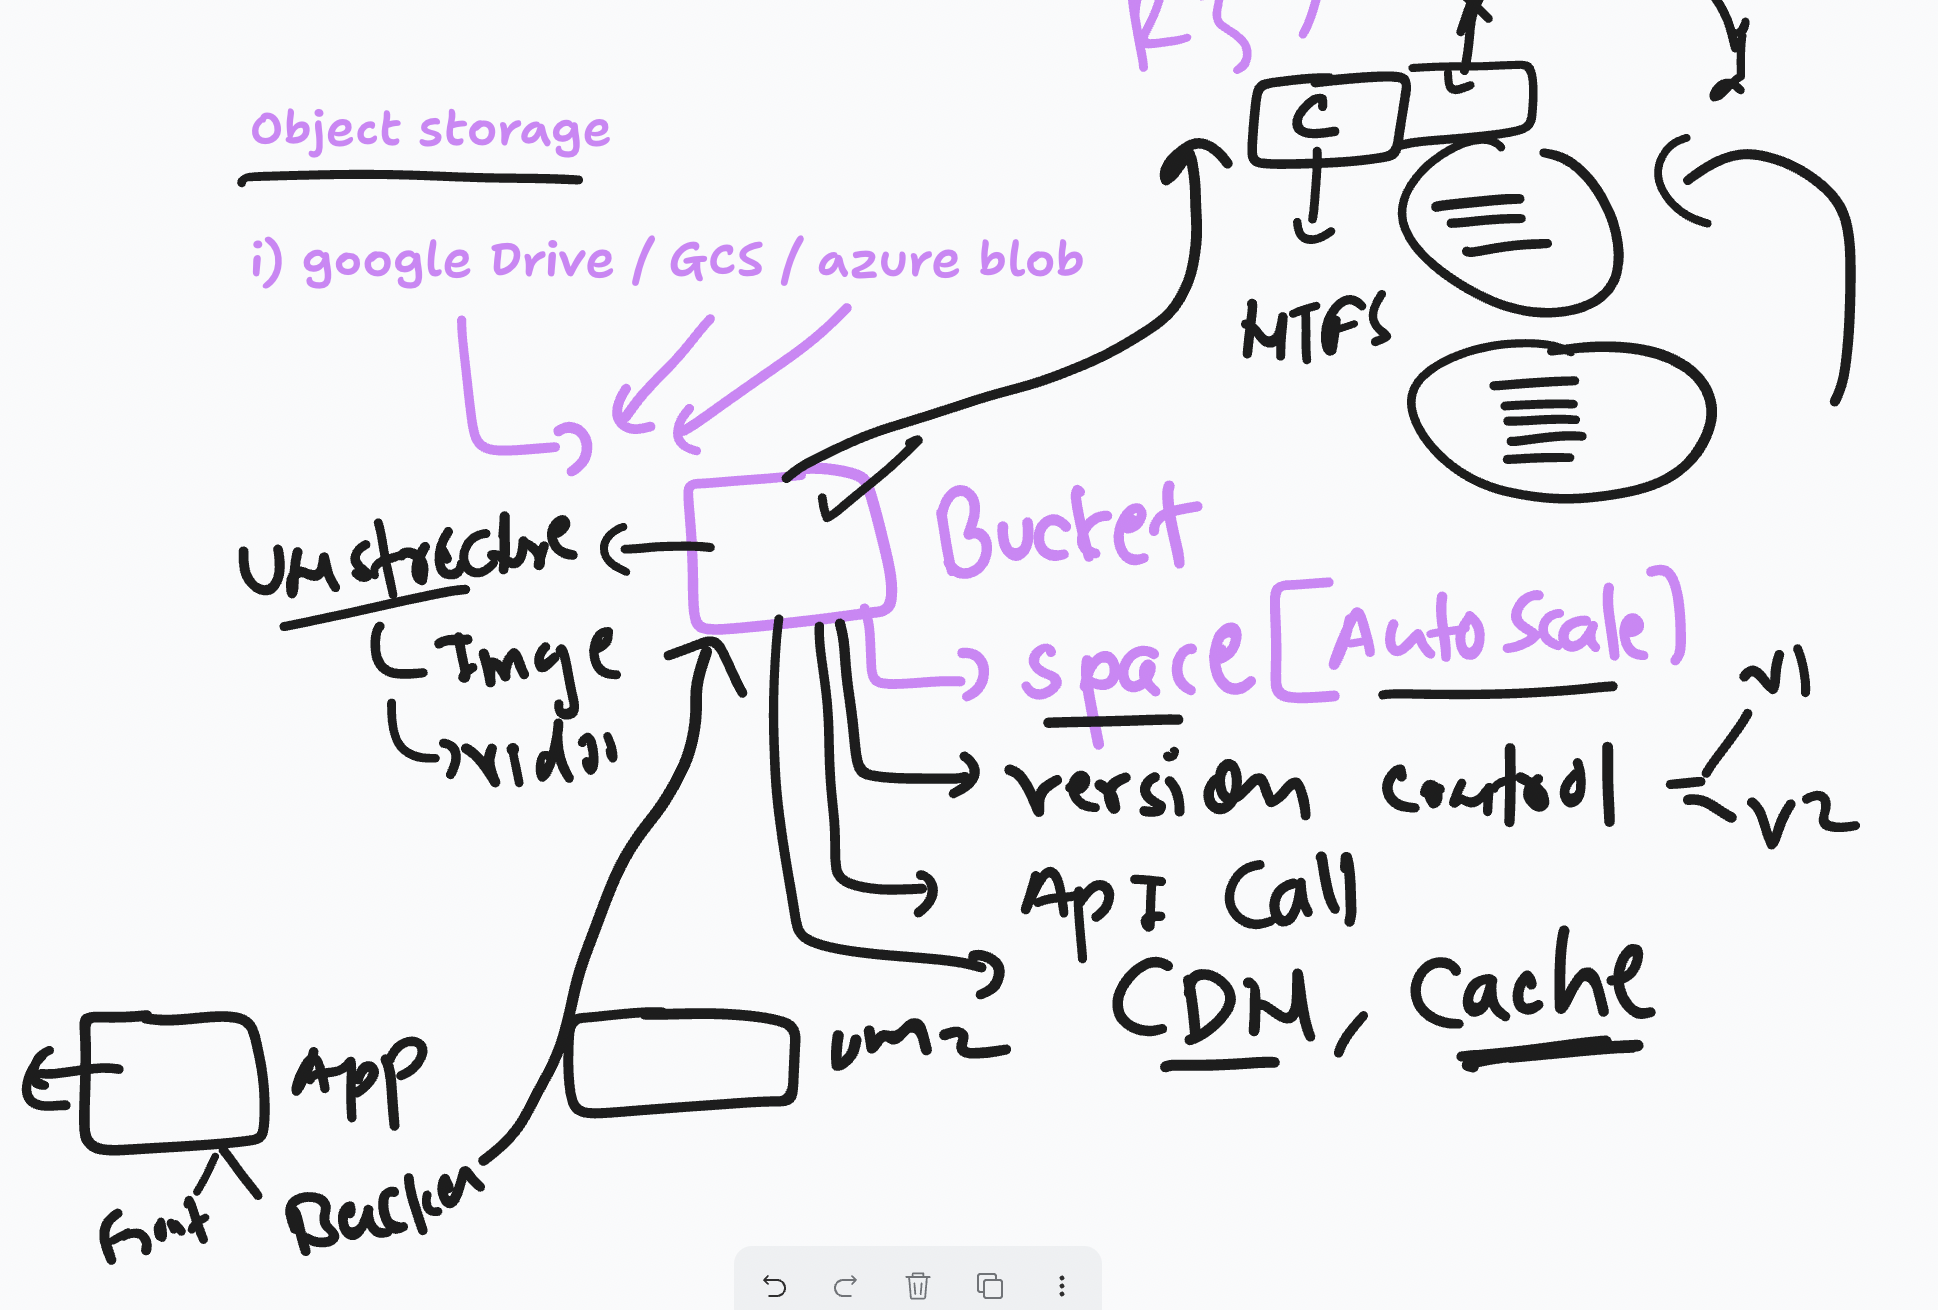 Object storage
i) google Drive / GCS / azure blob
C
NTFS
Bucket
Unstrecture
Imge
space [Auto Scale]
version control
v1
v2
API Call
CDN, Cache
App
vm2
Front
Backen